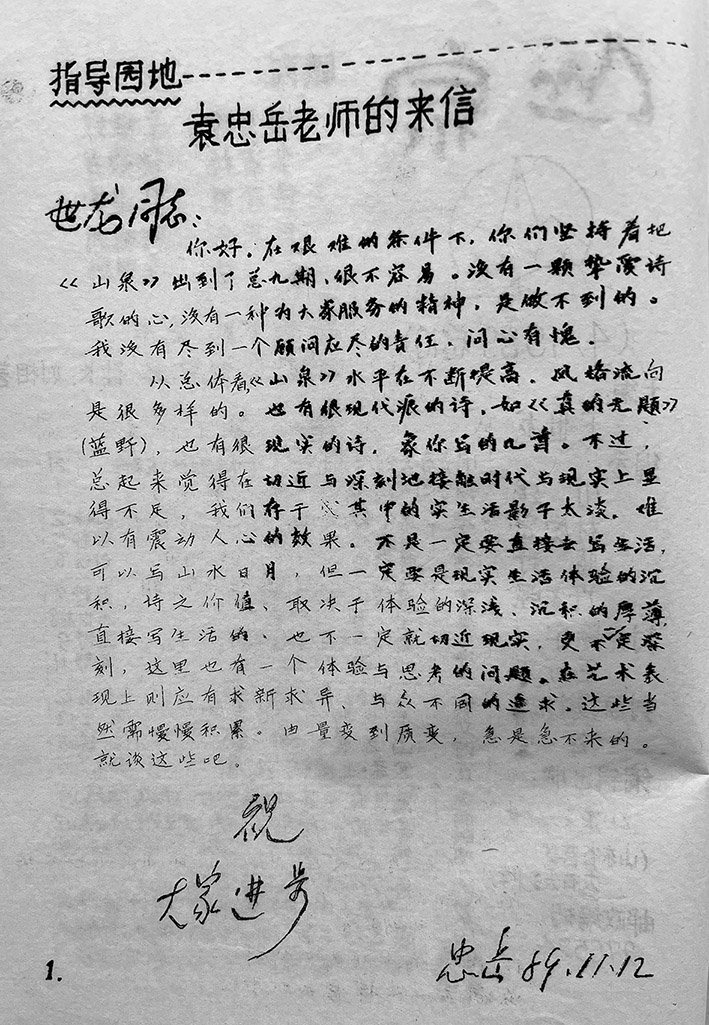 指导园地
袁忠岳老师的来信
世龙同志:
你好。在艰难的条件下,你们坚持着把
《山泉》出到了总九期、很不容易。没有一颗挚爱诗
歌的心,没有一种为大家服务的精神,是做不到的。
我没有尽到一个顾问应尽的责任,问心有愧。
从总体看《山泉》水平在不断提高,风格流向
是很多样的。也有很现代派的诗,如《真的无题》
(蓝野),也有很现实的诗,象你写的几首。不过,
总起来觉得在切近与深刻地接触时代与现实上显
得不足,我们存于其中的实生活影子太淡,难
以有震动人心的效果。不是一定要直接去写生活,
可以写山水日月,但一定要是现实生活体验的沉
积,诗之价值、取决于体验的深浅、沉积的厚薄,
直接写生活的、也不一定就切近现实,更不定深
刻,这里也有一个体验与思考的问题。在艺术表
现上则应有求新求异、与众不同的追求。这些当
然需慢慢积累。由量变到质变,急是急不来的。
就谈这些吧。
祝
大家进步
忠岳 89.11.12
1.